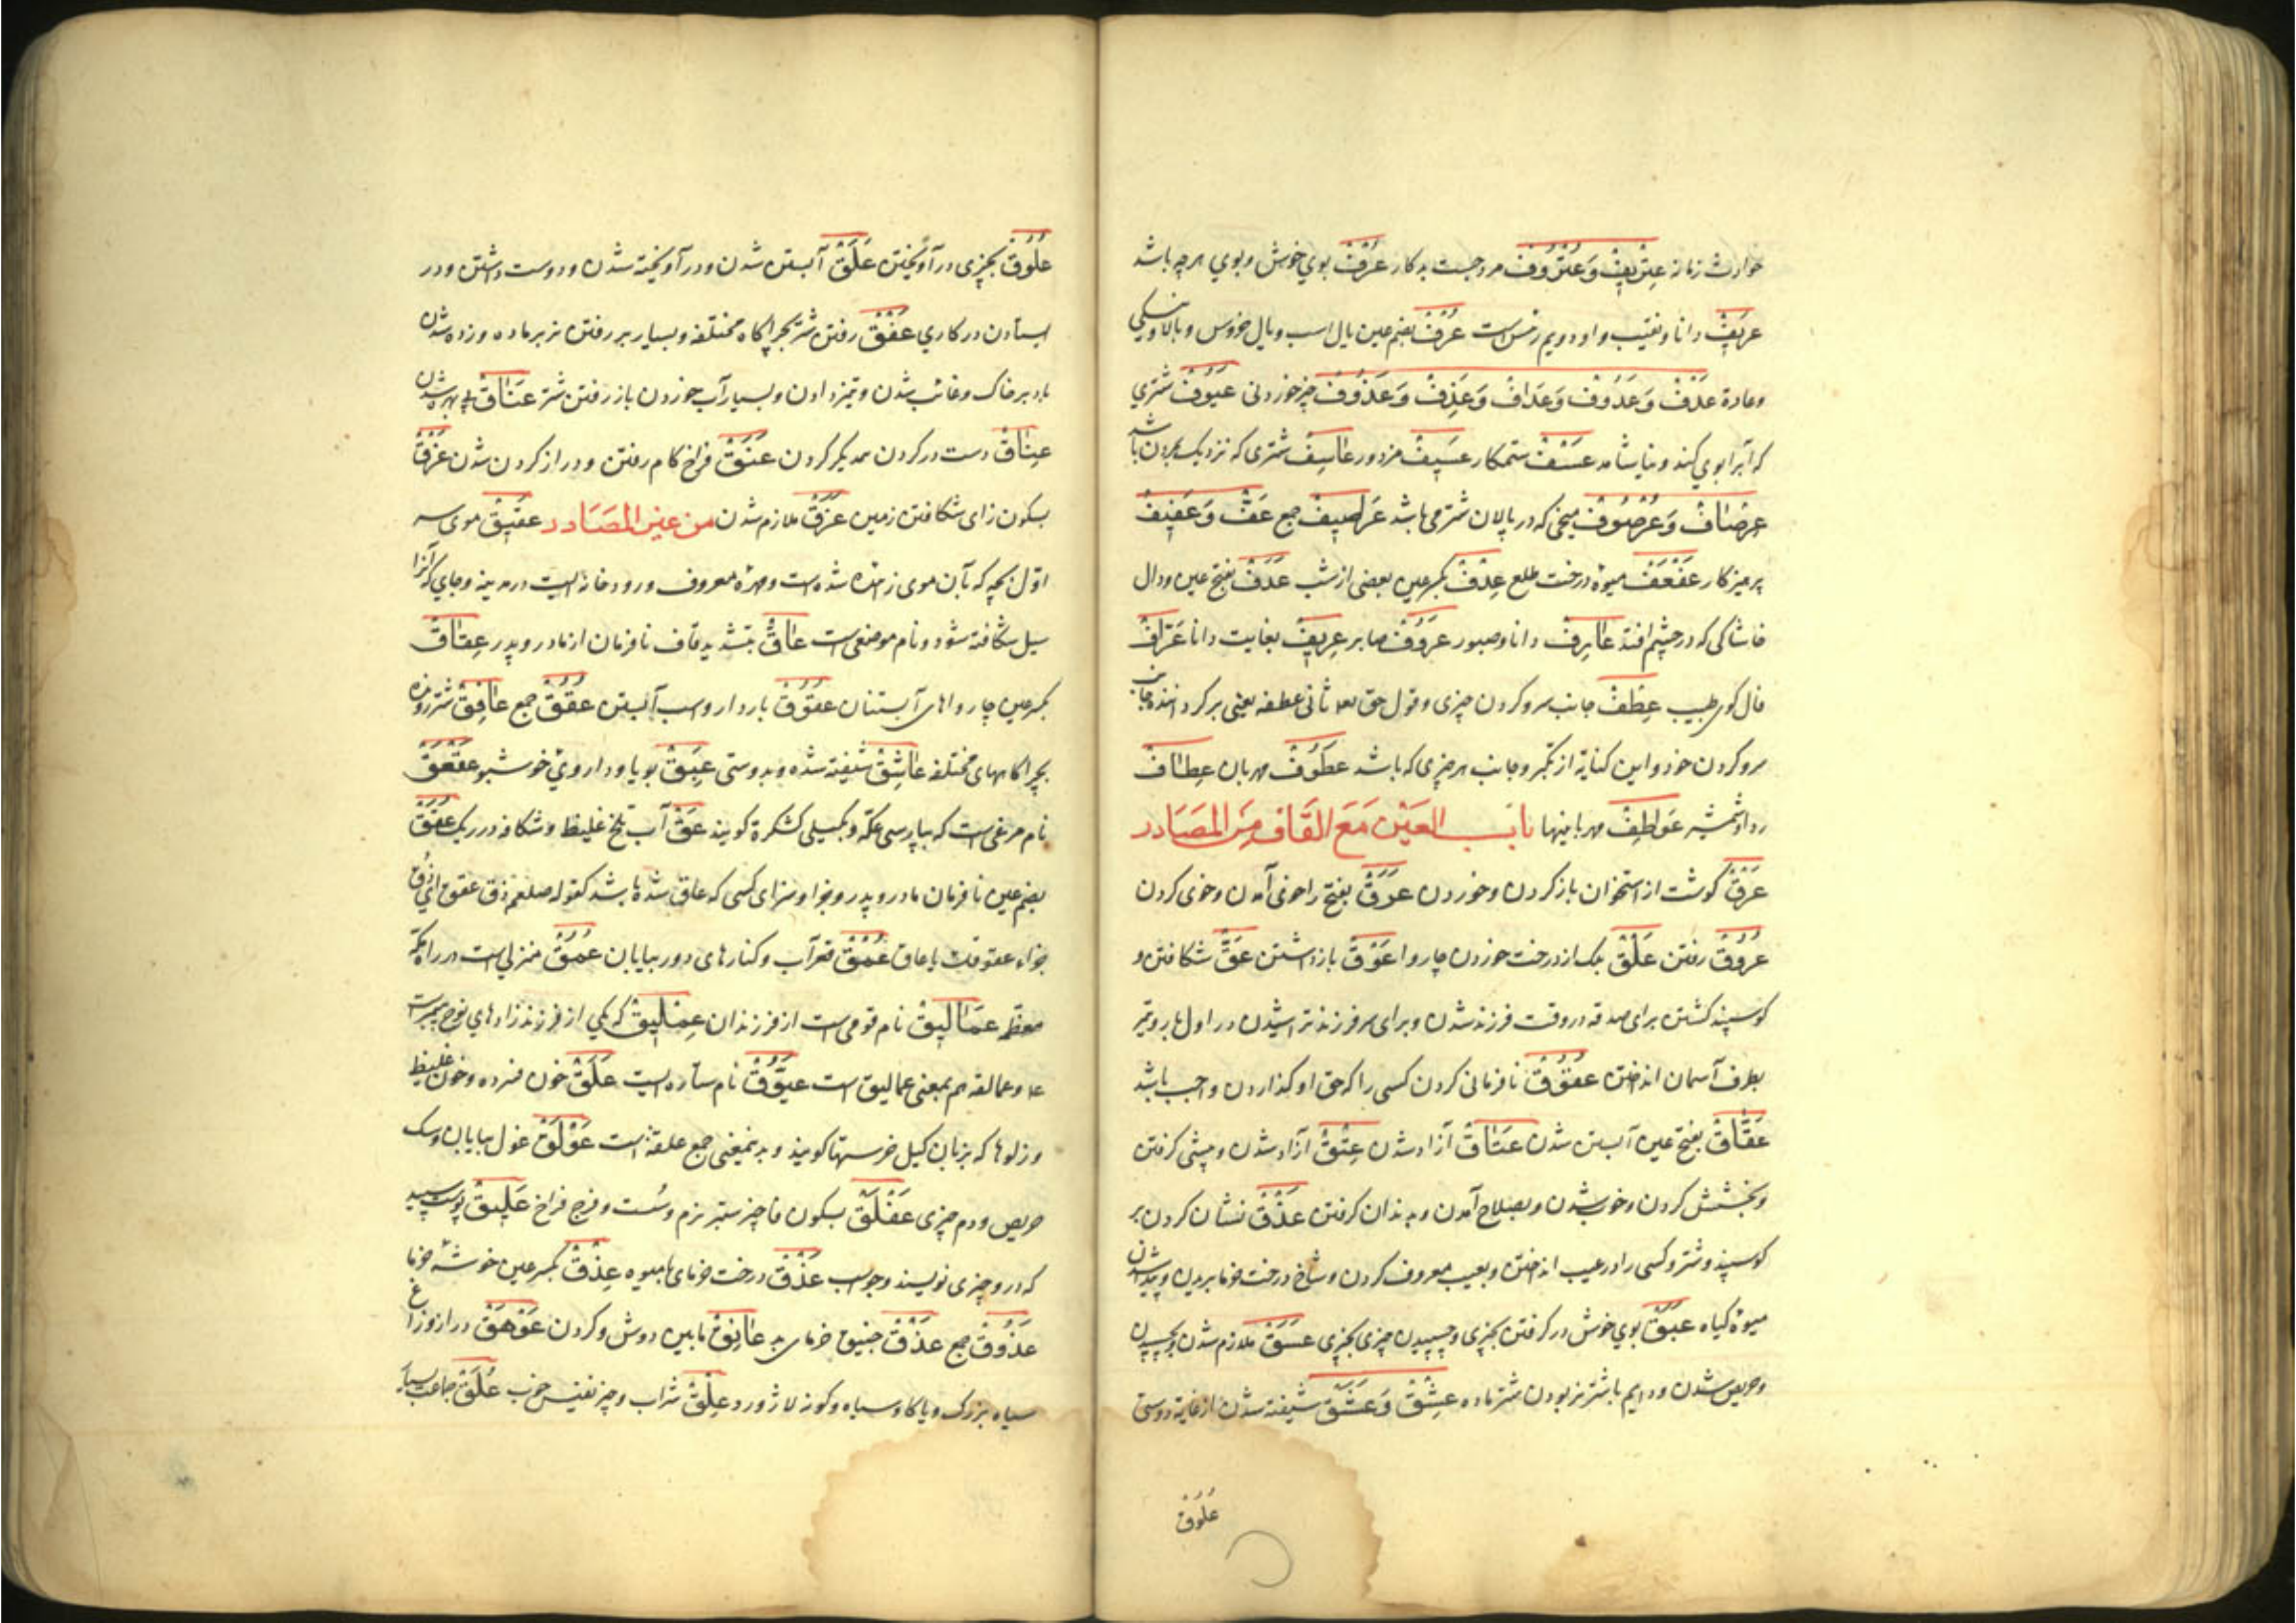 حوادث زمانه عِتْرِیفْ وَعُتْرُوفْ مرد چست به کار عَرْفْ بوی خوش و بوی هر چه باشد
عَرِیفْ دانا و نقیب و او دویم رئیس است عُرْفْ بضم عین یال اسب و یال خروس و بالا و نیکی
وعادة عَدْفْ وَعَدُوفْ وَعَدَافْ وَعَذِفْ وَعَذُوفْ چیز خوردنی عَیُوفْ شتری
که آب را بوی کند و نیاشامد عَسْفْ ستمکار عَسِیفْ مزدور عاسِفْ شتری که نزدیک بمردن باشد
عِرْصَافْ وَعُرْصُوفْ میخی که در پالان شتر می باشد عَرَاصِیفْ جمع عَفْ وَعَفِیفْ
پرهیزکار عَفْعَفْ میوهٔ درخت طلع عِدْفْ بکسر عین بعضی از شب عَدَفْ بفتح عین و دال
خاشاکی که در چشم افتد عَارِفْ دانا و صبور عَرُوفْ صابر عِرِیفْ بغایت دانا عَرَّافْ
فال کوی طبیب عِطْفْ جانب سر و کردن چیزی و قول حق ثانی عطفه یعنی بر کرداننده جانب
سر و کردن خود و این کنایة از تکبر و جانب هر چیزی که باشد عَطُوفْ مهربان عِطَافْ
ردا و شمشیر عَوَاطِفْ مهربانیها بابُ العَیْن مَعَ القَاف مِنَ المَصَادر
عَرْقْ کوشت از استخوان باز کردن و خوردن عَرَقْ بفتح را خوی آمدن و خوی کردن
عُرُوقْ رفتن عَلْقْ برک از درخت خوردن چاروا عَوْقْ باز داشتن عَقْ شکافتن و
کوسپند کشتن برای صدقه در وقت فرزند شدن و برای سر فرزند تراشیدن در اول بار و تیر
بطرف آسمان انداختن عُقُوقْ نافرمانی کردن کسی را که حق او کذاردن واجب باشد
عَقَاقْ بفتح عین آبستن شدن عَتَاقْ آزاد شدن عِتْقْ آزاد شدن و پیشی کرفتن
و بخشش کردن و خوب شدن و بصلاح آمدن و بدندان کرفتن عَذْقْ نشان کردن بر
کوسپند و شتر و کسی را در عیب انداختن و بعیب معروف کردن و شاخ درخت خرما بریدن و پیدا شدن
میوهٔ کیاه عَبَقْ بوی خوش در کرفتن بچیزی و چسپیدن چیزی بچیزی عَسَقْ ملازم شدن و چسپیدن
و حریص شدن و دایم با شتر نر بودن شتر ماده عِشْقْ وَعَشَقْ شیفته شدن از غایة دوستی
عُلُوقْ
عُلُوقْ بچیزی در آویختن عَلَقْ آبستن شدن و در آویخته شدن و دوست داشتن و در
ایستادن در کاری عَفْقْ رفتن شتر بچراکاه مختلفه و بسیار بر رفتن نر بر ماده و زده شدن
باد بر خاک و غائب شدن و تیز دادن و بسیار آب خوردن باز رفتن شتر عَنَاقْ بی بهره شدن
عِنَاقْ دست در کردن همدیکر کردن عَنَقْ فراخ کام رفتن و دراز کردن شدن عَزْقْ
بسکون زای شکافتن زمین عَزَقْ ملازم شدن من غیر المَصَادر عَقِیقْ موی سر
اوّل بچه که بآن موی زائیده شده است و مهرهٔ معروف و رودخانه ایست در مدینه و جای که آنرا
سیل شکافته شود و نام موضعی است عَاقْ بتشدید قاف نافرمان از مادر و پدر عِقَاقْ
بکسر عین چارواهای آبستنان عَقُوقْ باردار و اسب آبستن عُقُقْ جمع عَافِقْ شتر رونده
بچراکاههای مختلفه عَاشِقْ شیفته شده و بدوستی عَبِقْ بویا و داروی خوشبو عَقْعَقْ
نام مرغی است که بپارسی عکّه و بکیلی کشکرة کویند عَقْ آب تلخ غلیظ و شکاف در ریک عُقَقْ
بضم عین نافرمان مادر و پدر و جزا و سزای کسی که عاق شده باشد کقوله صلعم ذق عقق ای ذق
جزاء عقوقک یا عاق عُمْقْ قعر آب و کنارهای دور بیابان عُمَقْ منزلی است در راه مکه
معظمه عَمَالِیقْ نام قومی است از فرزندان عِمْلِیقْ که یکی از فرزند زادهای نوح پیغمبر است
ع و عمالقه هم بمعنی عمالیق است عَیُّوقْ نام ستاره ایست عَلَقْ خون فسرده و خون غلیظ
و زلوها که بزبان کیل خرستها کویند و بدین معنی جمع علقه است عَوْلَقْ غول بیابان و سک
حریص و دم چیزی عَفْلَقْ بسکون فا چیز ستبر نرم و سُست و فرج فراخ عَلِیقْ پوست سپید
که در و چیزی نویسند و جو اسب عَذْقْ درخت خرمای با میوه عِذْقْ بکسر عین خوشهٔ خرما
عُذُوقْ جمع عَذْقْ جنیق خرمای به عَاتِقْ مابین دوش و کردن عَوْهَقْ دراز و زاغ
سیاه بزرک و یا کاو سیاه و کونه لاژورد عِلْقْ شراب و چیز نفیس خوب عُلَقْ جماعت بسیار